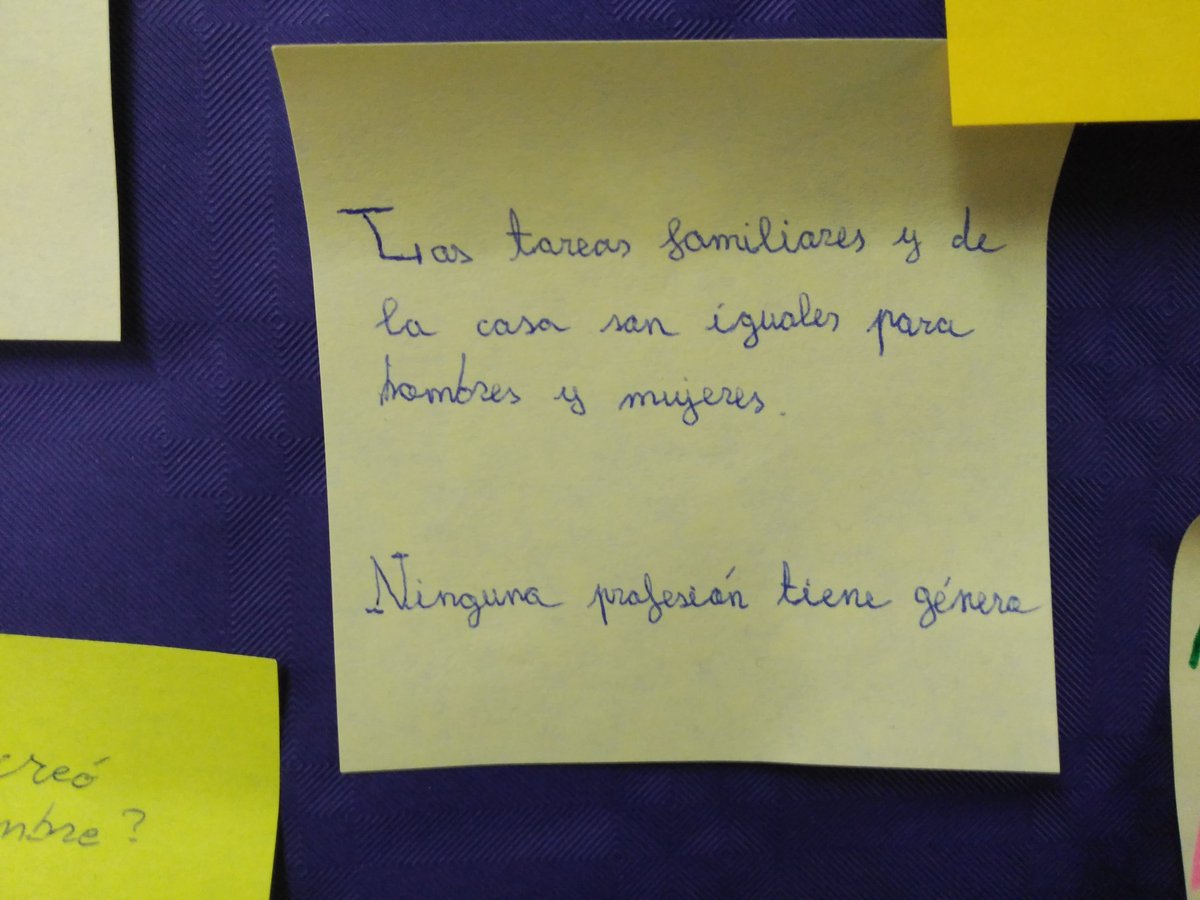 Las tareas familiares y de
la casa son iguales para
hombres y mujeres.
Ninguna profesión tiene género
creó
mbre?